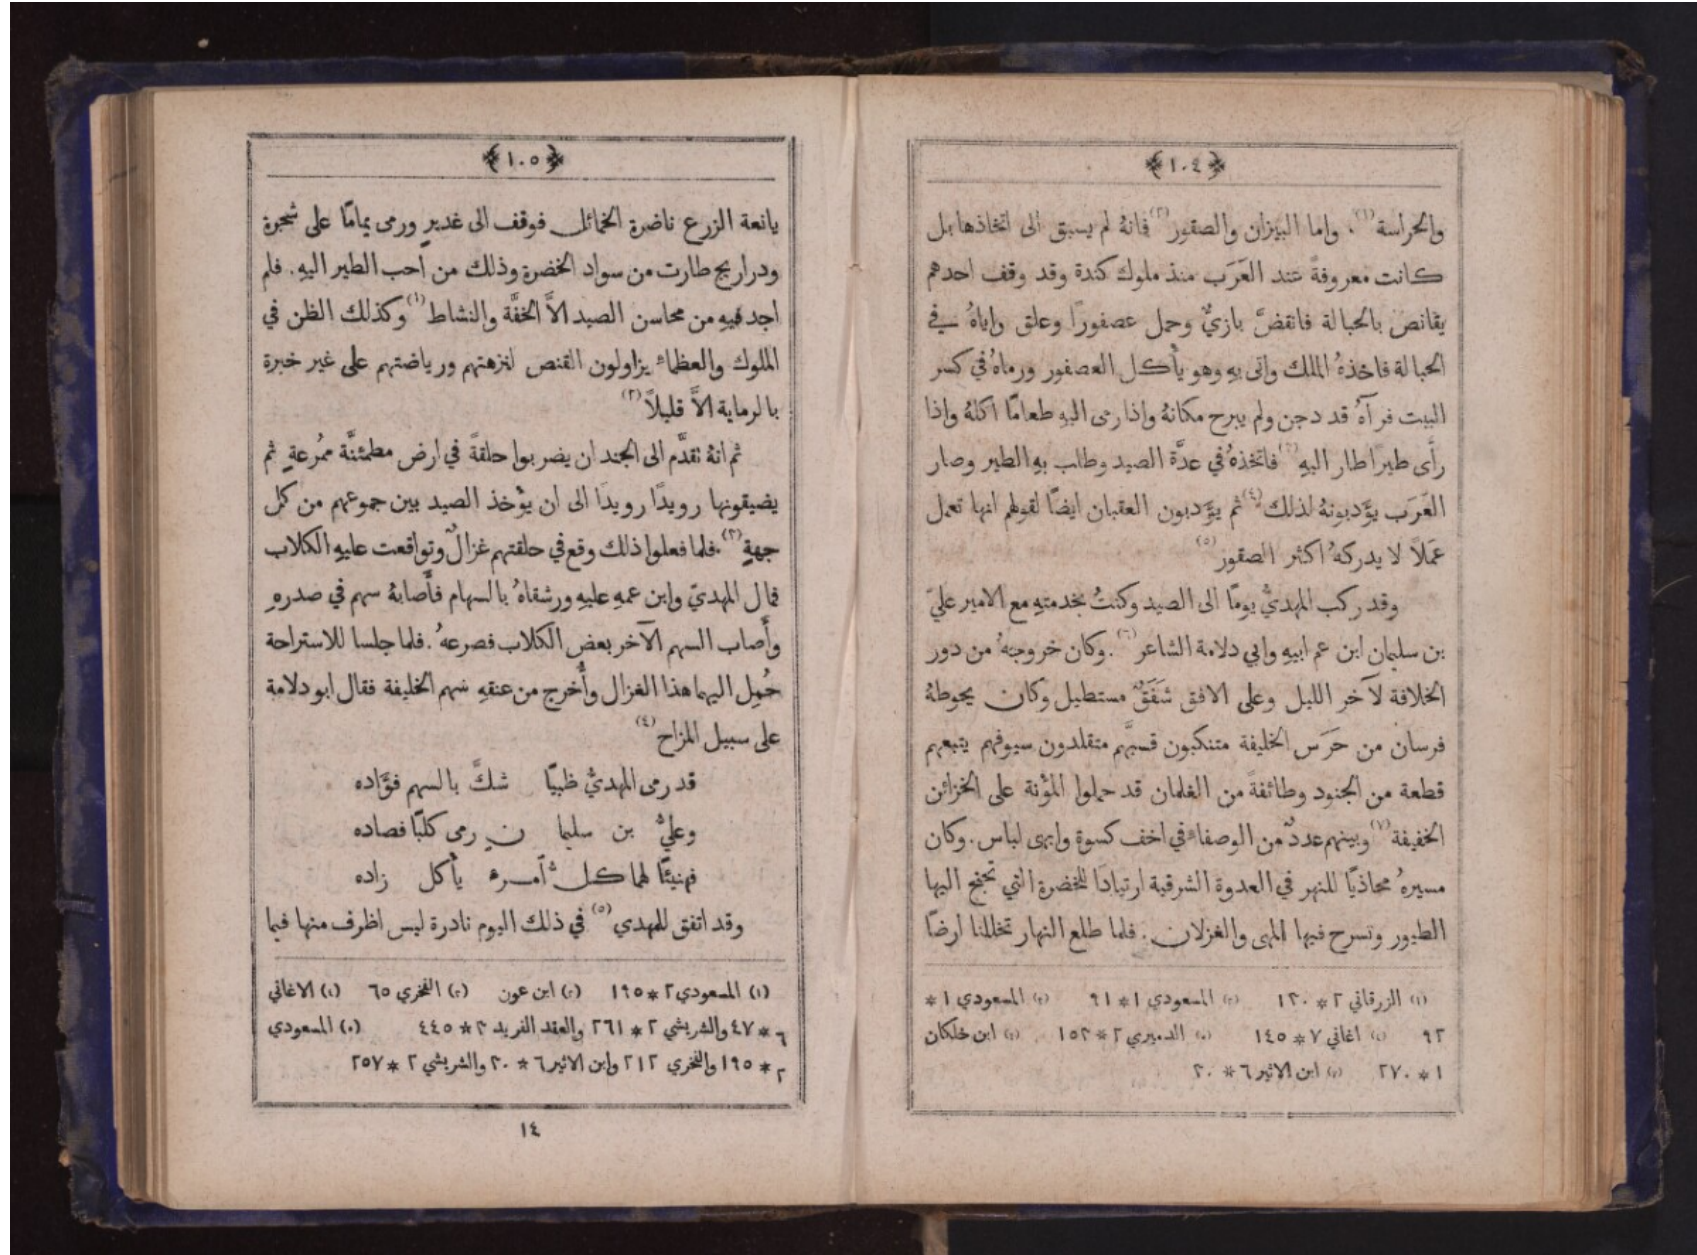 ﴿١٠٤﴾
والحراسة (١)، واما البيزان والصقور (٢) فانهُ لم يسبق الى اتخاذها بل
كانت معروفةً عند العَرَب منذ ملوك كندة وقد وقف احدهم
يقانص بالحبالة فانقضَّ بازيٌّ وحمل عصفورًا وعلق واياهُ في
الحبالة فاخذهُ الملك واتى بهِ وهو يأكل العصفور ورماهُ في كسر
البيت فرآهُ قد دجن ولم يبرح مكانهُ واذا رمى اليهِ طعامًا اكلهُ واذا
رأَى طيرًا طار اليهِ (٣) فاتخذهُ في عدَّة الصيد وطلب بهِ الطير وصار
العَرَب يؤَدبونهُ لذلك (٤) ثم يؤَدبون العقبان ايضًا لقولهم انها تعمل
عَمَلاً لا يدركهُ اكثر الصقور (٥)
وقد ركب المهديُّ يومًا الى الصيد وكنتُ بخدمتهِ مع الامير عليّ
بن سليمان ابن عم ابيهِ وابي دلامة الشاعر (٦). وكان خروجهُ من دور
الخلافة لآخر الليل وعلى الافق شَفَقٌ مستطيل وكان يحوطهُ
فرسان من حَرَس الخليفة متنكبون قسيَّهم متقلدون سيوفهم يتبعهم
قطعة من الجنود وطائفةً من الغلمان قد حملوا المؤنة على الخزائن
الخفيفة (٧) وبينهم عددٌ من الوصفاءِ في اخف كسوة وابهى لباس. وكان
مسيرهُ محاذيًا للنهر في العدوة الشرقية ارتيادًا للخضرة التي تجنح اليها
الطيور وتسرح فيها المهى والغزلان. فلما طلع النهار تخللنا ارضًا
(١) الزرقاني ٢ * ١٣٠ (٢) المسعودي ١ * ٩١ (٣) المسعودي ١ *
٩٢ (٤) اغاني ٧ * ١٤٥ (٥) الدميري ٢ * ١٥٣ (٦) ابن خلكان
١ * ٢٧٠ (٧) ابن الاثير ٦ * ٣٠
﴿١٠٥﴾
يانعة الزرع ناضرة الخمائل فوقف الى غديرٍ ورمى يمامًا على شجرة
ودراريج طارت من سواد الخضرة وذلك من احب الطير اليهِ. فلم
اجد فيهِ من محاسن الصيد الاَّ الخفَّة والنشاط (١) وكذلك الظن في
الملوك والعظماءِ يزاولون القنص لنزهتهم ورياضتهم على غير خبرة
بالرماية الاَّ قليلاً (٢)
ثم انهُ تقدَّم الى الجند ان يضربوا حلقةً في ارض مطمئنَّة ممُرعةٍ ثم
يضيقونها رويدًا رويدًا الى ان يؤخذ الصيد بين جموعهم من كل
جهةٍ (٣). فلما فعلوا ذلك وقع في حلقتهم غزالٌ وتواقعت عليهِ الكلاب
فمال المهديّ وابن عمهِ عليهِ ورشقاهُ بالسهام فأَصابهُ سهم في صدرهِ
وأَصاب السهم الآخر بعض الكلاب فصرعهُ. فلما جلسا للاستراحة
حُمِل اليهما هذا الغزال وأُخرج من عنقهِ سهم الخليفة فقال ابو دلامة
على سبيل المزاح (٤)
قد رمى المهديُّ ظبيًا شكَّ بالسهم فؤَاده
وعليُّ بن سليما نِ رمى كلبًا فصاده
فهنيئًا لهما كلُّ امرءٍ يأكل زاده
وقد اتفق للمهدي (٥) في ذلك اليوم نادرة ليس اظرف منها فيما
(١) المسعودي ٢ * ١٩٥ (٢) ابن عون (٣) الفخري ٦٥ (٤) الاغاني
٩ * ٤٧ والشريشي ٢ * ٢٦١ والعقد الفريد ٣ * ٤٤٥ (٥) المسعودي
٢ * ١٩٥ والفخري ٢١٢ وابن الاثير ٦ * ٣٠ والشريشي ٢ * ٢٥٧
١٤